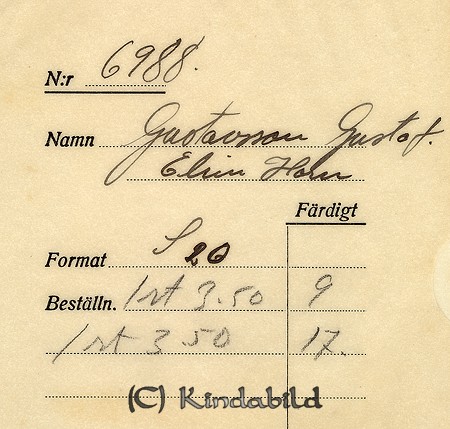 N:r 6988.
Namn Gustavsson Gustaf.
Elim Horn
Färdigt
Format S 20
Beställn. 1 st 3.50 9
1 st 3 50 17.
(C) Kindabild